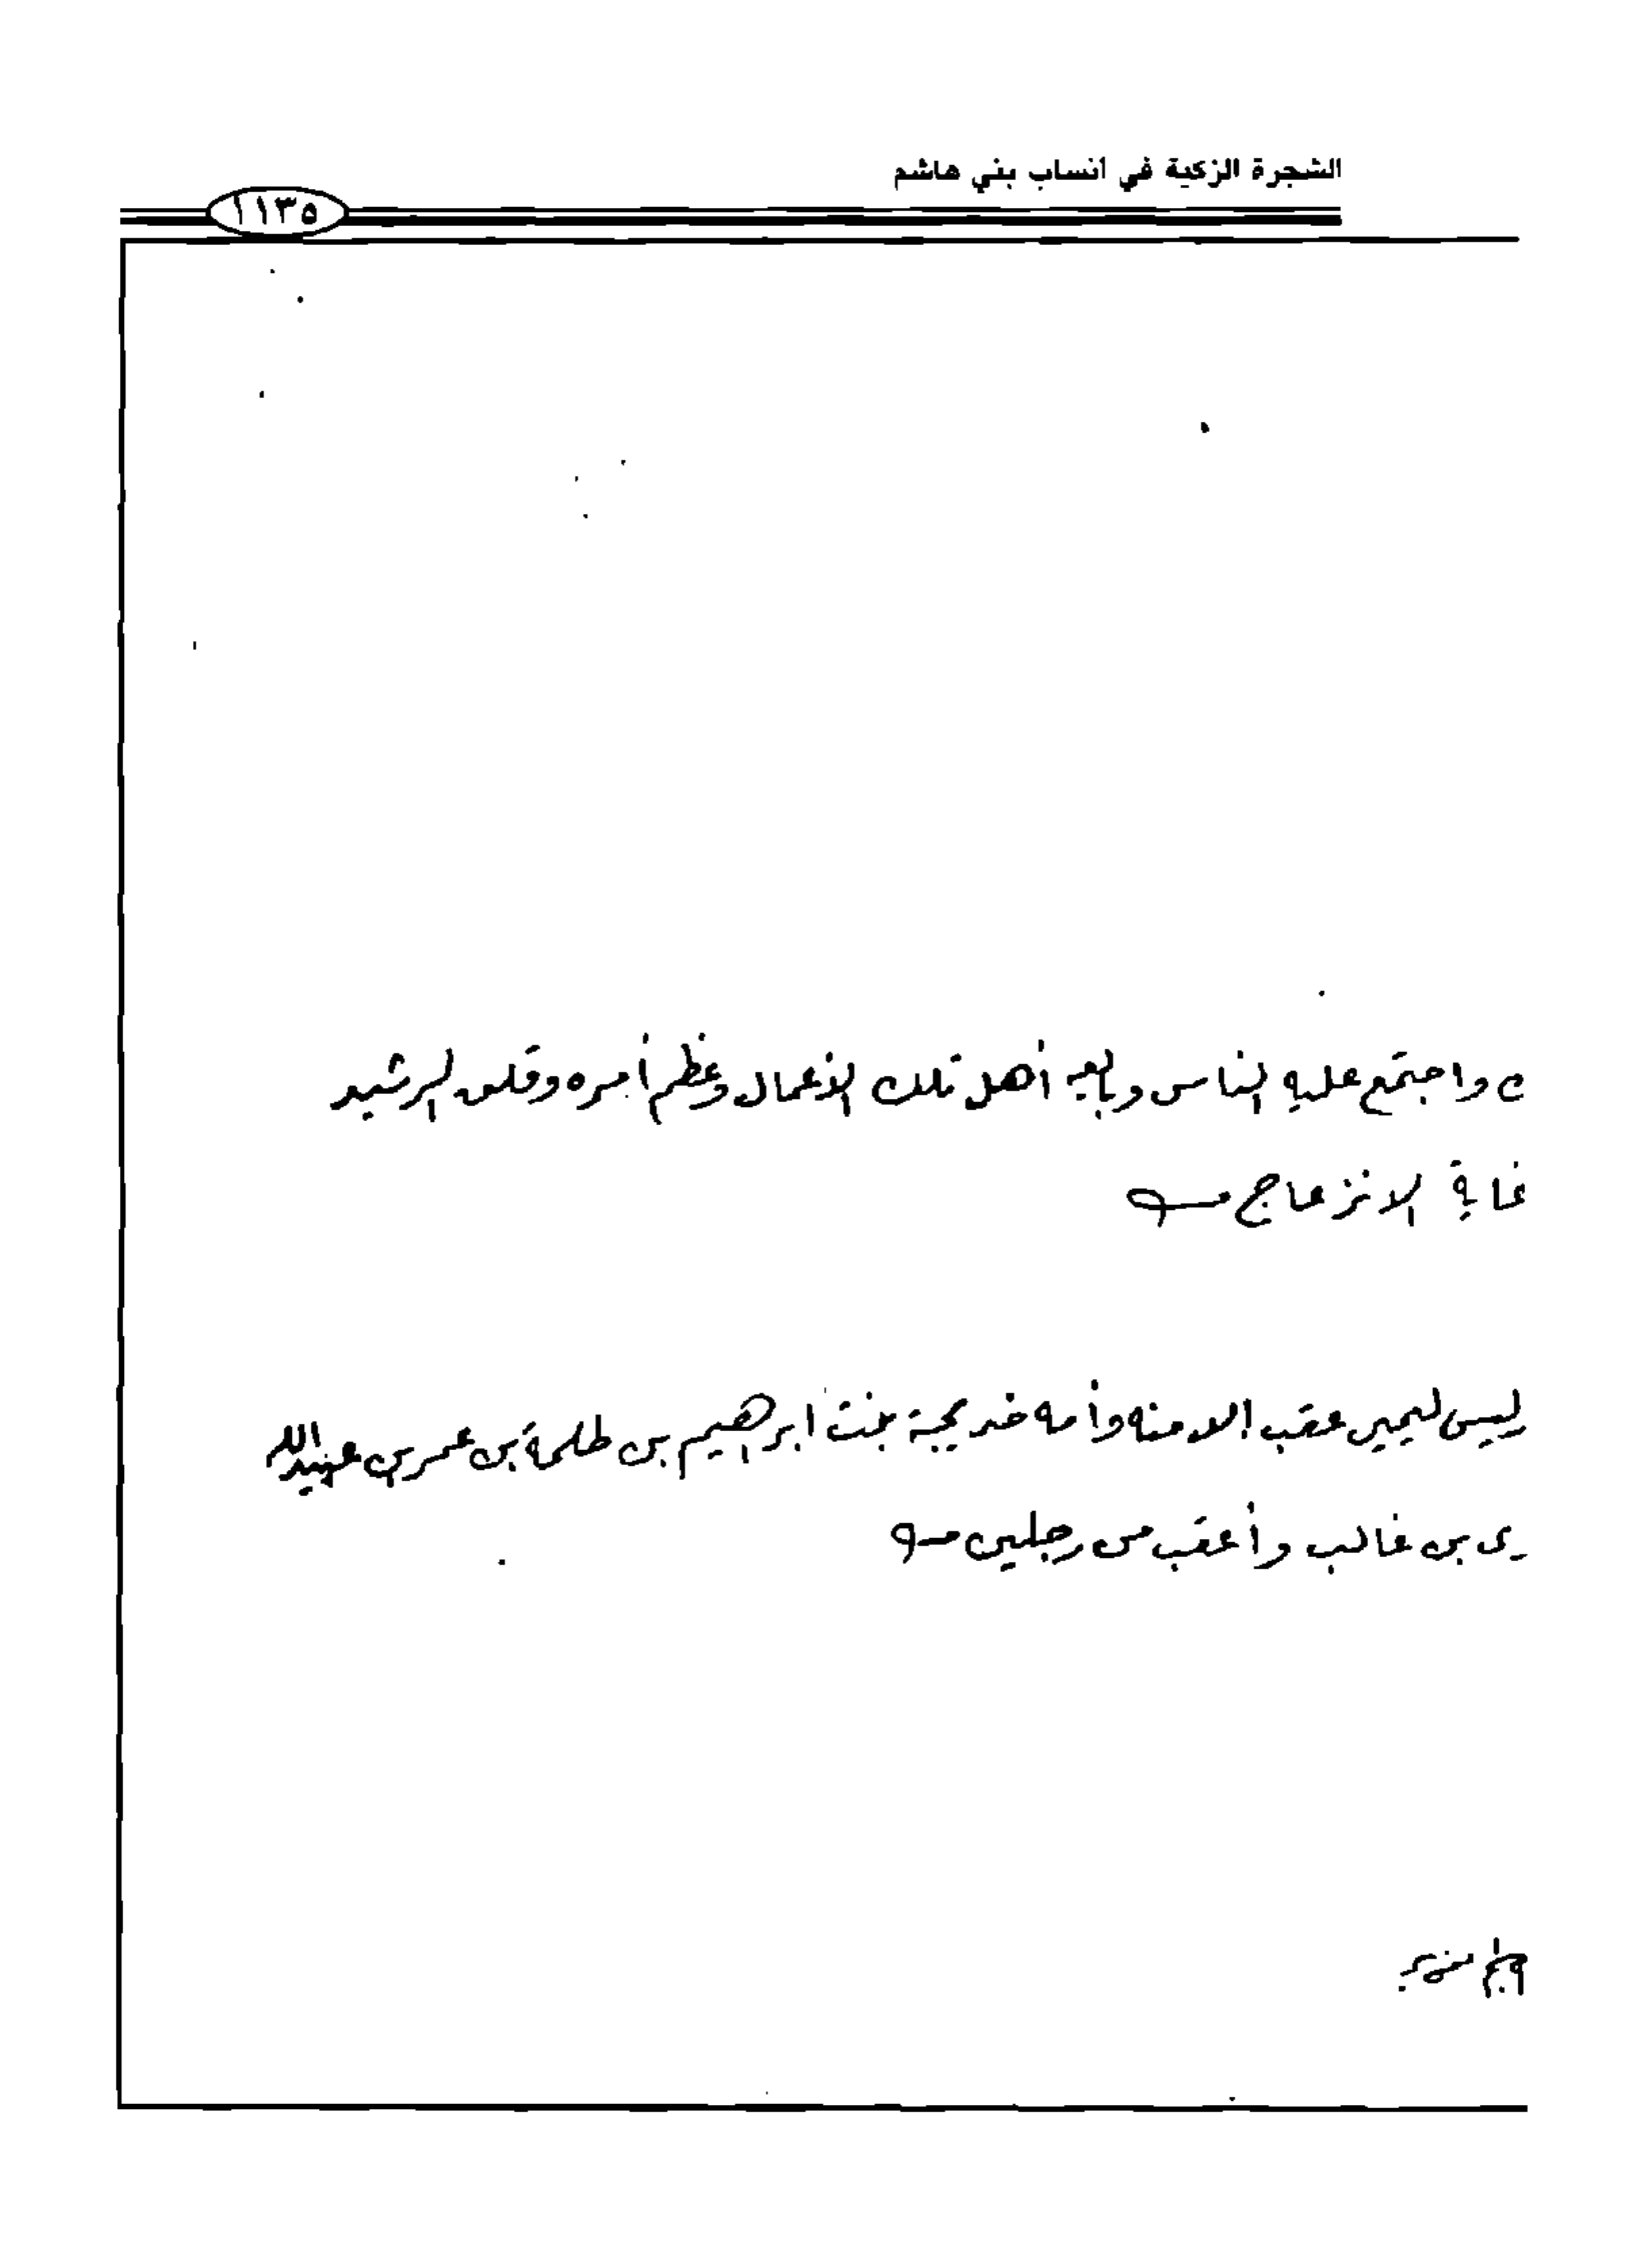 الشجرة الزكية في انساب بني هاشم
١١٣٥
واجتمع عليه الناس وبايعه أهل تلك الأعمال وعظم أمره وقلق الرشيد
غاية الانزعاج
ليس ليحيى عقب الا منه وأمه خديجة بنت ابراهيم بن طلحة بن عمر بن عبيدالله
بن غالب وأعقب من رجلين